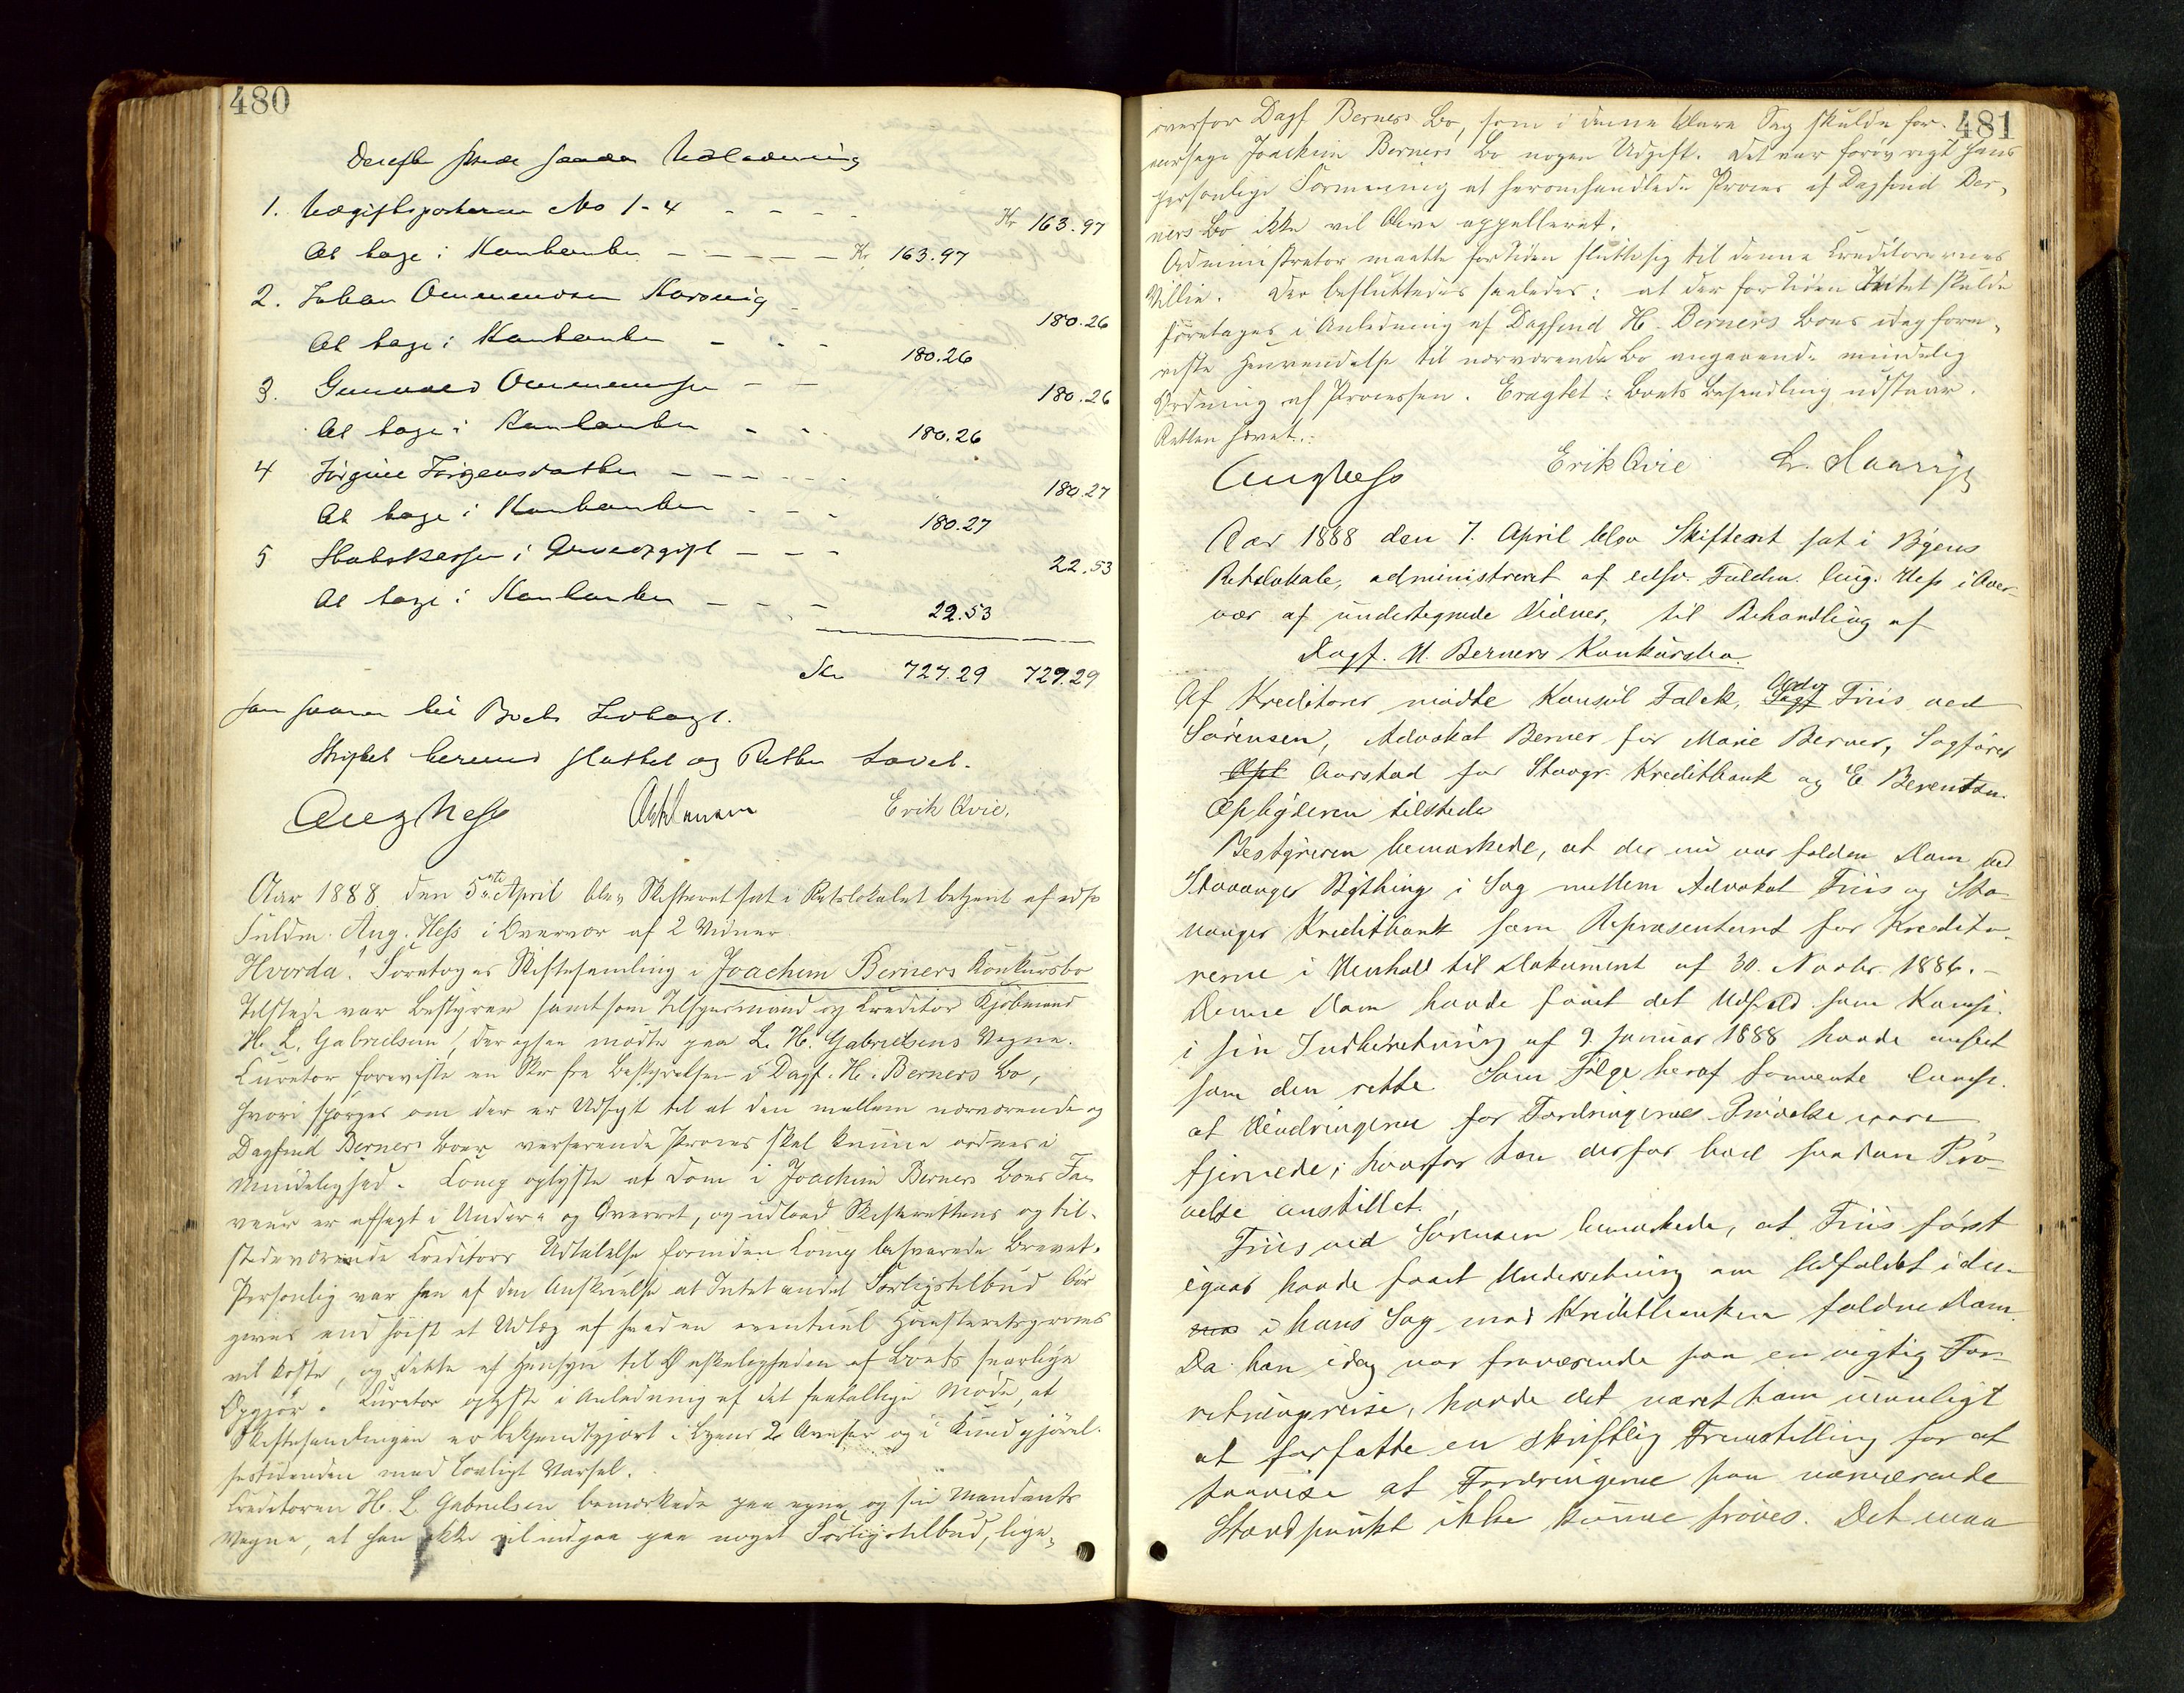 480
Derefter skede saadan Udlodning
1. Udgiftsposterne No 1-4 - - - - Kr 163.97
At tage i Kontanter - - - - - Kr 163.97
2. Johan Ommundsen 180.26
At tage i Kontanter - - - 180.26
3. Gunvald Ommundsen - - 180.26
At tage i Kontanter - - - 180.26
4 Jörgine Törgensdatter - - - - 180.27
At tage i Kontanter - - - 180.27
5 Statskassen i Arveafgift - - - 22.53
At tage i Kontanter - - - 22.53
Kr 727.29 727.29
som svarer til Boets Indtægt.
Skiftet hermed sluttet og Retten hævet.
Aug Hess Erik Qvie.
Aar 1888 den 5te April blev Skifteret sat i Retslokalet betjent af edsv
Fuldm. Aug. Hess i Overvær af 2 Vidner.
Hvorda! Foretoges Skiftesamling i Joachim Berners Konkursbo
Tilstede var Bestyrer samt som Tilsynsmand og Kreditor Kjöbmand
H. L. Gabrielsen, der ogsaa mödte paa L. H. Gabrielsens Vegne.
Curator foreviste en Skr fra Bestyrelsen i Dagf. H. Berners Bo,
hvori spörges om der er Udsigt til at den mellem nærværende og
Dagfind Berners Boer verserende Proces skal kunne ordnes i
Mindelighed. Comp oplyste at Dom i Joachim Berners Boes Fa-
veur er afsagt i Under- og Overret, og udbad Skifterettens og til-
stedeværende Creditors Udtalelse forinden Comp besvarede Brevet.
Personlig var han af den Anskuelse at Intet andet Forligstilbud bör
gives end höist et Udlæg af hvad en eventuel Höiesteretsproces
vil koste, og dette af Hensyn til Ønskeligheden af Boets snarlige
Opgjör. Curator oplyste i Anledning af det faatallige Möde, at
Skiftesamlingen er bekjendtgjort i Byens 2 Aviser og i Kundgjörel-
sestidenden med lovligt Varsel.
Creditoren H. L. Gabrielsen bemærkede paa egne og sin Mandants
Vegne, at han ikke vil indgaa paa noget Forligstilbud, lige-
481
overfor Dagf Berners Bo, som i denne klare Sag skulde for-
aarsage Joachim Berners Bo nogen Udgift. Det var foröv rigt hans
personlige Formening at heromhandlede Proces af Dagfind Ber-
ners Bo ikke vil blive appelleret.
Administrator maatte fortiden slutte sig til denne Creditorernes
Villie. Der besluttedes saaledes: at der for Tiden Intet skulde
foretages i Anledning af Dagfind H. Berners Boes idag fore-
viste Henvendelse til nærværende Bo angaaende mindelig
Ordning af Processen. Eragtet: Boets Behandling udstaar.
Retten hævet.:
Aug Hess Erik Qvie
Aar 1888 den 7. April blev Skifteret sat i Byens
Retslokale, administreret af edsv. Fuldm. Aug. Hess i Over-
vær af undertegnede Vidner, til Behandling af
Dagf. H. Berners Konkursbo.
Af Kreditorer mödte Konsul Falck, Adv Friis ved
Sörensen, Advokat Berner for Marie Berner, Sagförer
Aarstad for Stavgr. Kreditbank og E Berentsen.
Opbyderen tilstede
Bestyreren bemærkede, at der nu var falden Dom ved
Stavanger Bything i Sag mellem Advokat Friis og Sta-
vanger Kreditbank som Repræsentant for Kredito-
rerne i Henhold til Dokument af 30. Novbr. 1886.-
Denne Dom havde faaet det Udfald som Komp.
i sin Indberetning af 9. Januar 1888 havde anseet
som den rette. Som Fölge heraf formente Comp.
at Hindringerne for Fordringernes Prövelse vare
fjernede; hvorfor han derfor bad saadan Prö-
velse anstillet.
Friis ved Sörensen bemærkede, at Friis först
igaar havde faaet Underretning om Udfaldet i den
i hans Sag mod Kreditbanken faldne Dom.
Da han idag var fraværende paa en vigtig For-
retningsreise, havde det været ham umuligt
at forfatte en skriftlig Fremstilling for at
paavise at Fordringerne paa nærværende
Standpunkt ikke kunne pröves. Det maa